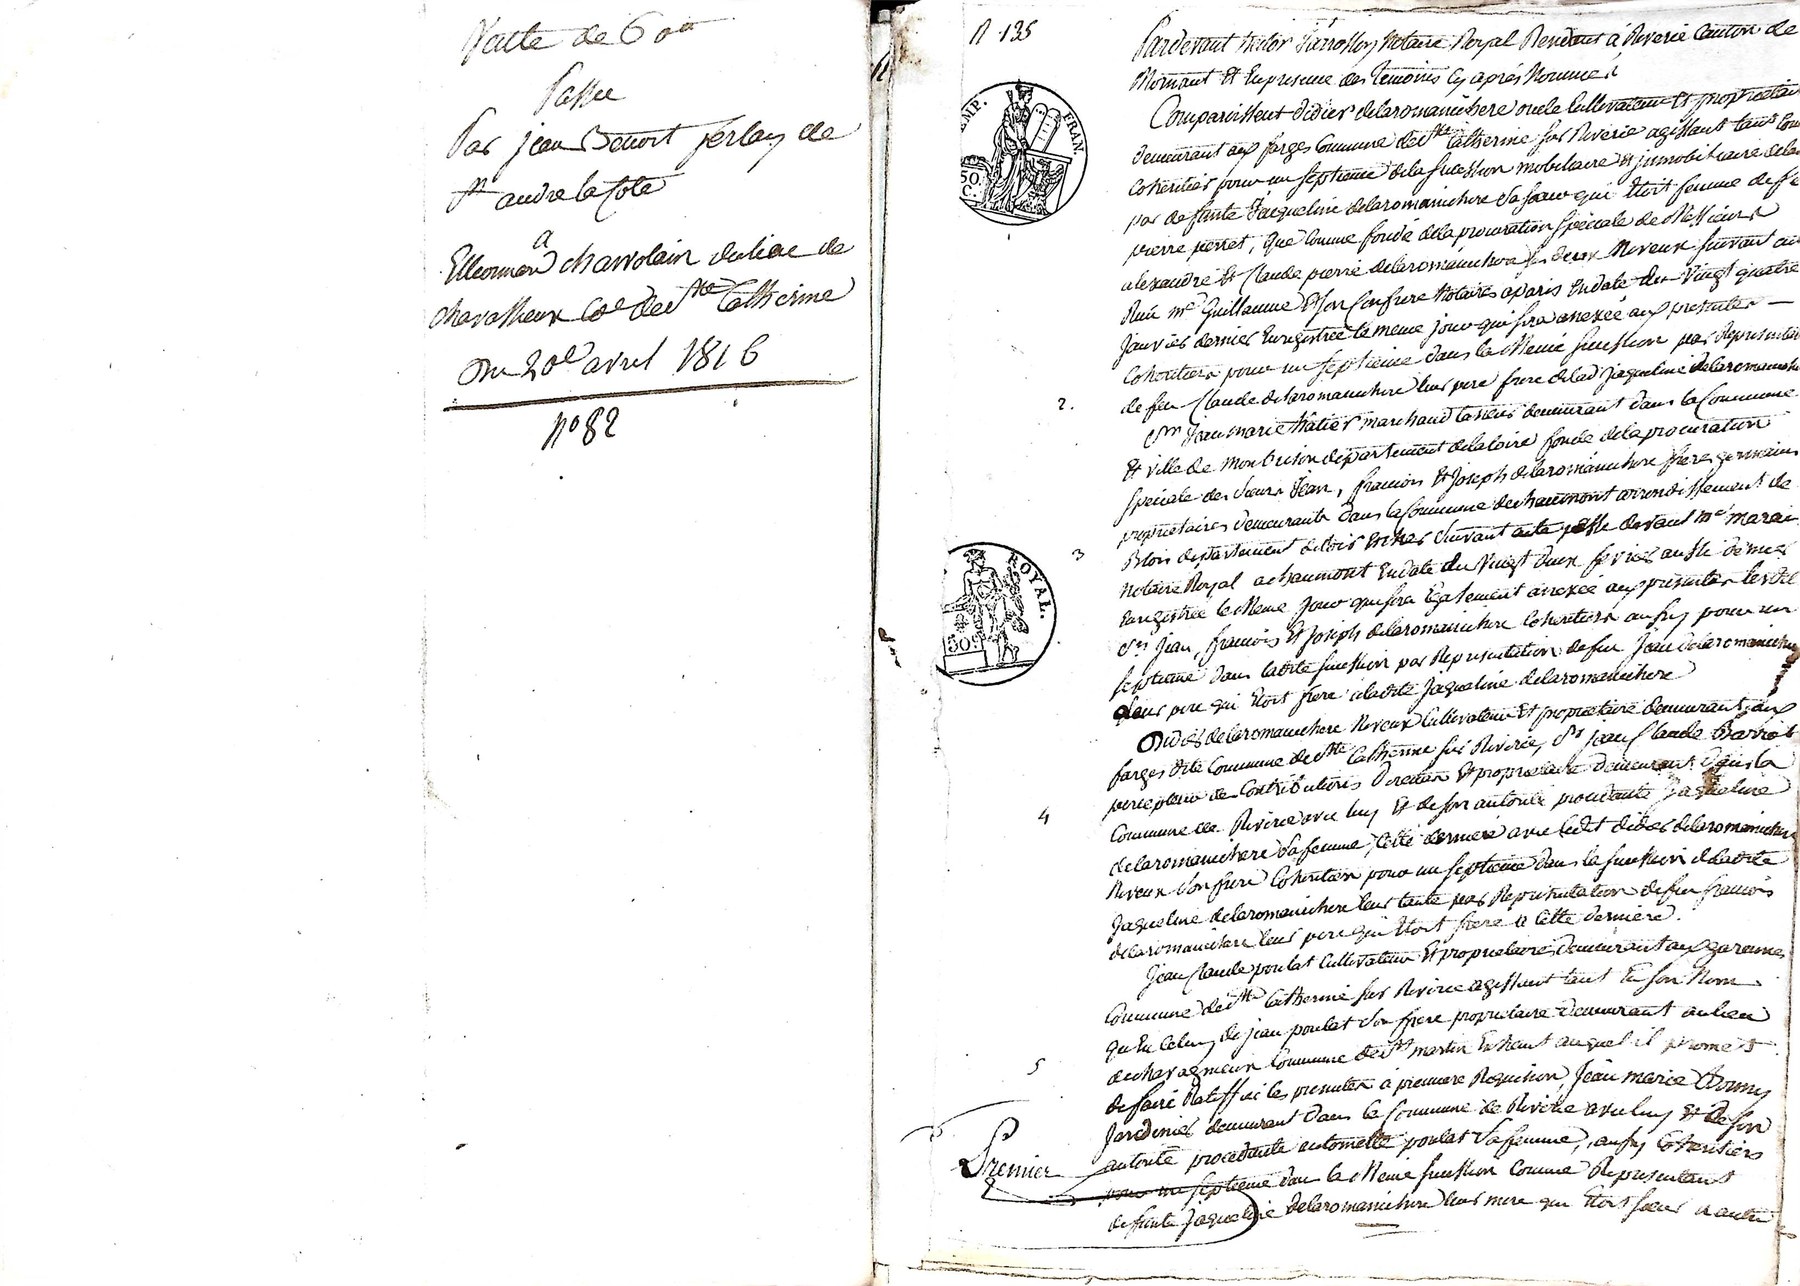 Vente de 600
Passée
Par jean Benoit ferlay de
St andré la Côte
a
chavrolain du lieu de
chavasseux Cne de Ste Catherine
Du 20e avril 1816
No 82
N 135
Pardevant Notaire Royal Résidant à Riverie Canton de
Mornant Et En presence des Temoins Cy après Nommés
Comparaissent didier delaromanichere oncle Cultivateur Et proprietaire
demeurant aux farges Commune de Ste Catherine sur Riverie agissant tant Com
Coheritier pour un septieme de la succession mobiliaire et immobiliaire dela
par defunte Jacqueline delaromanichere sa soeur qui Etoit femme de
pierre perret, que Comme fondé de la procuration spéciale de Messieurs
alexandre Et Claude pierre delaromanichere ses deux Neveux suivant
Reçu me Guillaume Et son Confrere Notaires a paris En date du Vingt quatre
Janvier dernier Enregistrée le meme jour qui sera anexée aux presentes
Coheritiers pour un septieme dans la Meme succession par Representa
de feu Claude delaromanichere leur pere frere de lad Jaqueline delaromaniche
2.
Sr Jean marie thatier marchand taneur demeurant dans la Commune
Et ville de montbrison departement de la loire fondé de la procuration
spéciale des sieurs Jean, francois Et Joseph delaromanichere freres germains
proprietaires demeurants dans la Commune de chaumont arrondissement de
3
Blois departement de loir Et cher suivant acte passé devant me marai
Notaire Royal a chaumont En date du Vingt deux fevrier aussi dernier
Enregistrée le Meme Jour qui sera Egalement anexée aux presentes
Srs Jean, francois Et Joseph delaromanichere Coheritiers aussy pour un
septieme dans ladite succession par Representation de feu Jean delaromanichere
leur pere qui Etoit frere a ladite Jaqueline delaromanichere
Didier delaromanichere Neveux Cultivateur Et proprietaire demeurant aux
farges dite Commune de Ste Catherine sur Riverie, Sr jean Claude
percepteur de Contributions directes Et proprietaire demeurant dans la
4
Commune de Riverie avec luy Et de son autorité procedante Jaqueline
delaromanichere sa femme, Cette derniere avec ledit didier delaromanichere
Neveux son frere Coheritiers pour un septieme dans la succession de ladite
Jaqueline delaromanichere leur tante par Representation de feu francois
delaromanichere leur pere qui Etoit frere a Cette derniere.
Jean Claude poulat Cultivateur Et proprietaire demeurant aux garennes
Commune de Ste Catherine sur Riverie agissant tant En son Nom
qu'En Celuy de jean poulat son frere proprietaire demeurant au lieu
5
de chavagneux Commune de St martin En haut auquel il promet
de faire Ratiffier les presentes à premiere Requisition, Jean marie
Jardinier demeurant dans la Commune de Riverie avec luy Et de son
autorité procedante poulat sa femme, aussy Coheritiers
pour un septieme dans la Meme succession Comme Representant
defunte Jaqueline delaromanichere leur mere qui Etoit soeur a autre
Premier
TIMP.
FRAN.
50
C.
ROYAL.
50